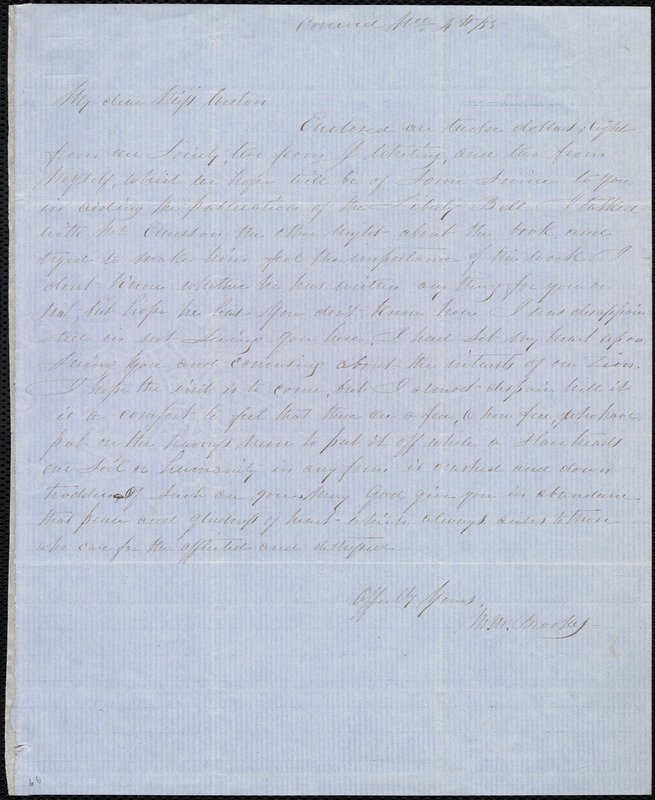 Concord Nov 4th /55
My dear Miss Weston
Enclosed are twelve dollars, eight
from our Society, two from J. Whiting, and two from
myself, which we hope will be of some service to you
in aiding the publication of the Liberty Bell. I talked
with Mr Emerson the other night about the book, and
tryed to make him feel the importance of the work. I
dont know whether he has written any thing for you or
not but hope he has. You don't know how I was disappoin
ted in not seeing you here. I had set my heart upon
seeing you and conversing about the interests of our Zion.
I hope the visit is to come, but I almost despair. Well it
is a comfort to feel that there are a few, & how few, who have
put on the harness never to put it off while a slave treads
our soil or humanity in any form is crushed and down
trodden. Of such are you. May God give you in abundance
that peace and gladness of heart which always arises to those
who care for the afflicted and
Affectly Yours
M. M. Brooks
66